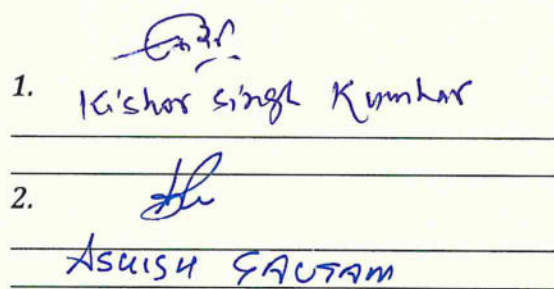 1.
Kishor Singh Kumhar
2.
ASHISH GAUTAM